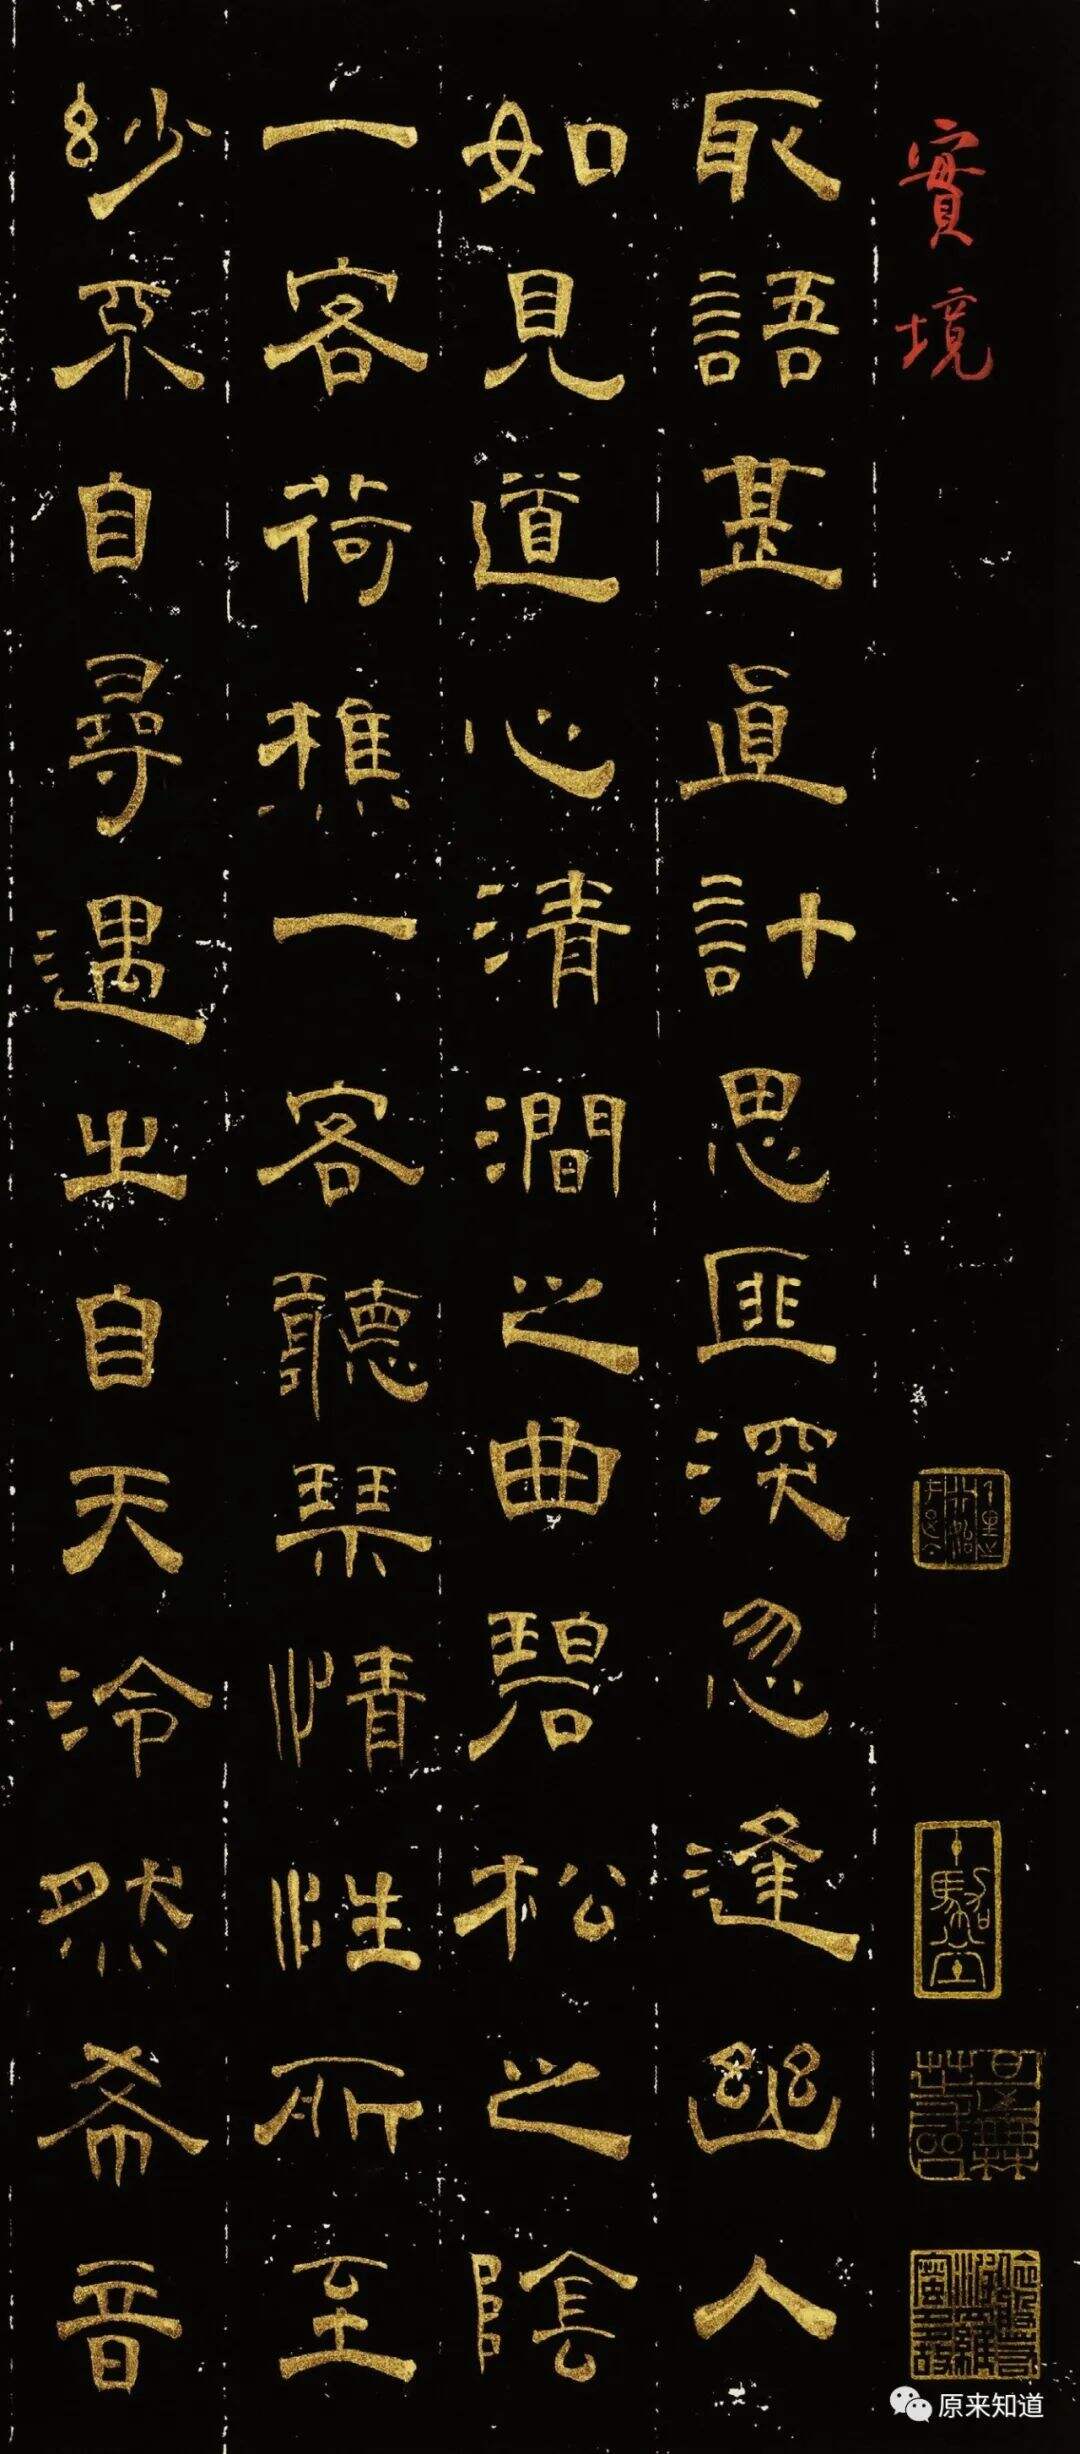 實境
取語甚直計思匪深忽逢幽人
如見道心清澗之曲碧松之陰
一客荷樵一客聽琴情性所至
玅不自尋遇之自天泠然希音
原来知道